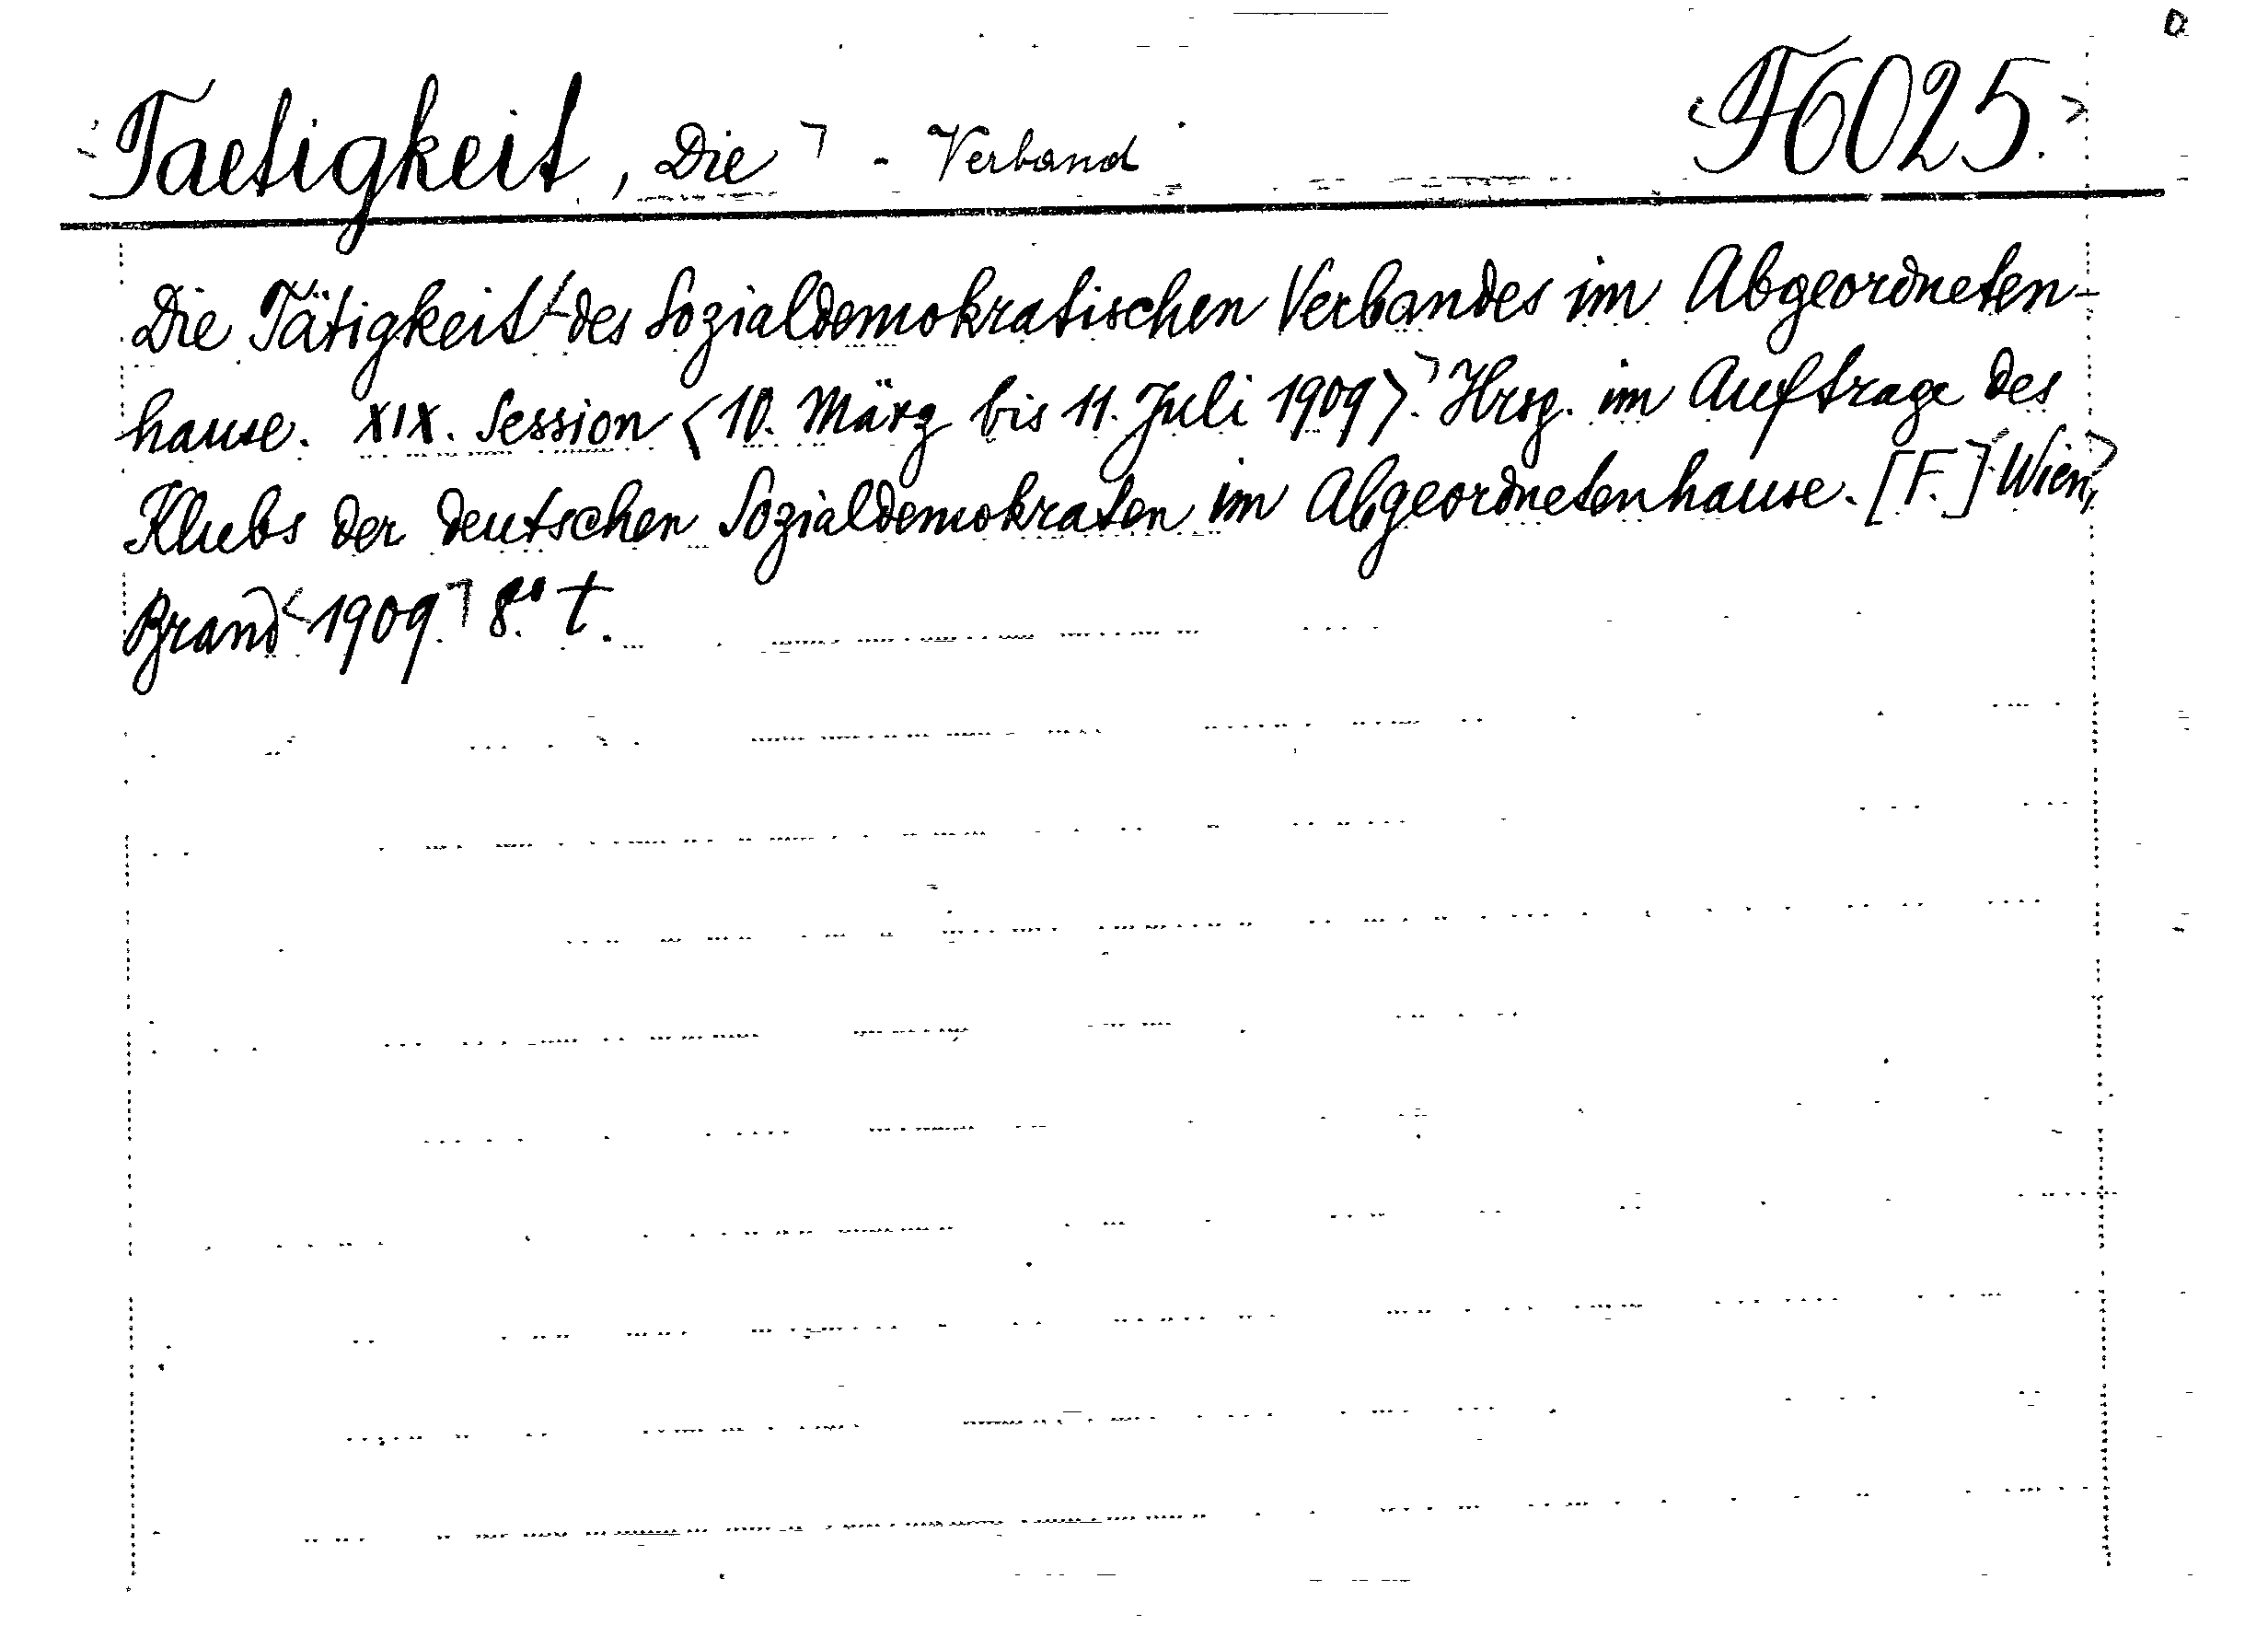 Taetigkeit, Die - Verband F6025.
Die Tätigkeit des Sozialdemokratischen Verbandes im Abgeordneten-
hause. XIX. Session <10. März bis 11. Juli 1909>. Hrsg. im Auftrage des
Klubs der deutschen Sozialdemokraten im Abgeordnetenhause. [F.] Wien,
Brand 1909. 8° t.